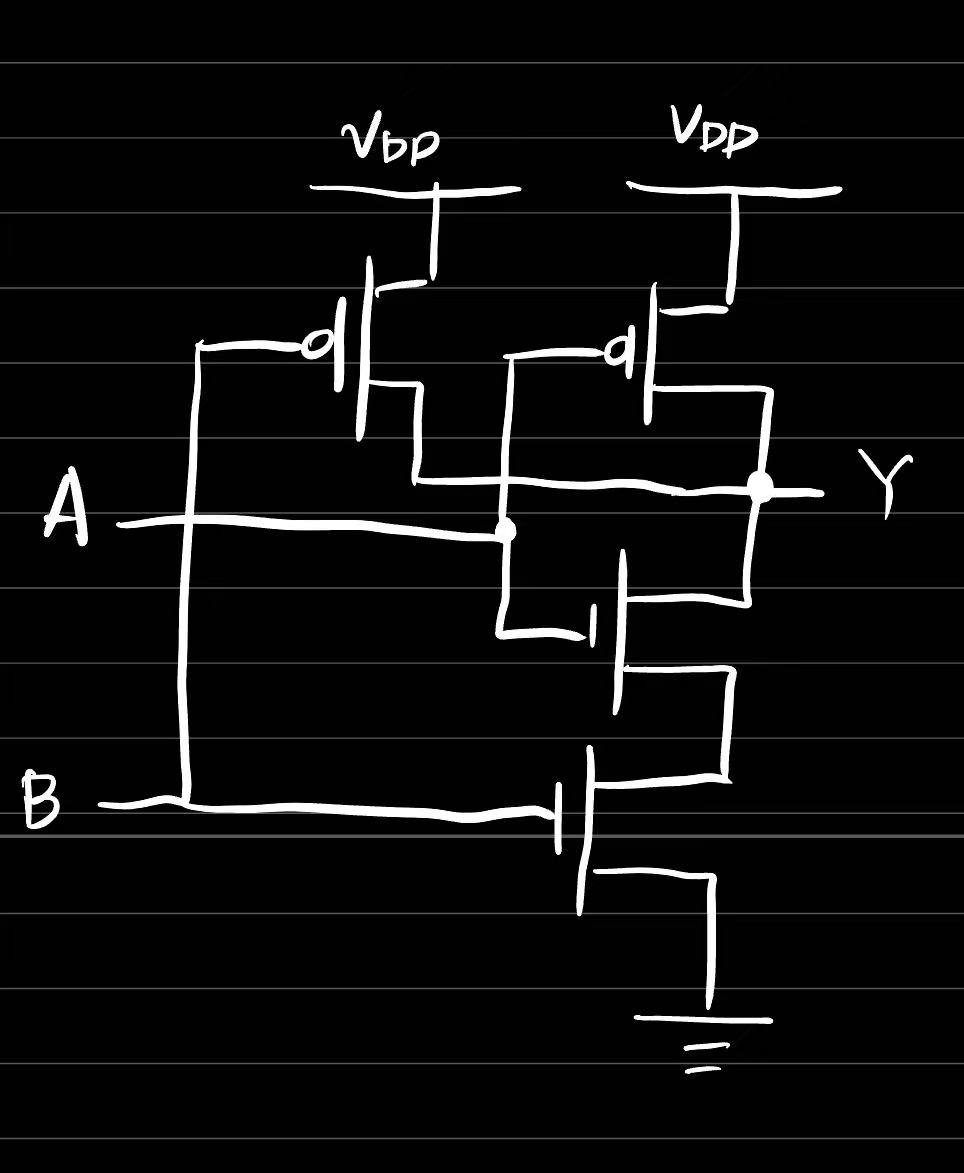 VDD VDD
A
Y
B